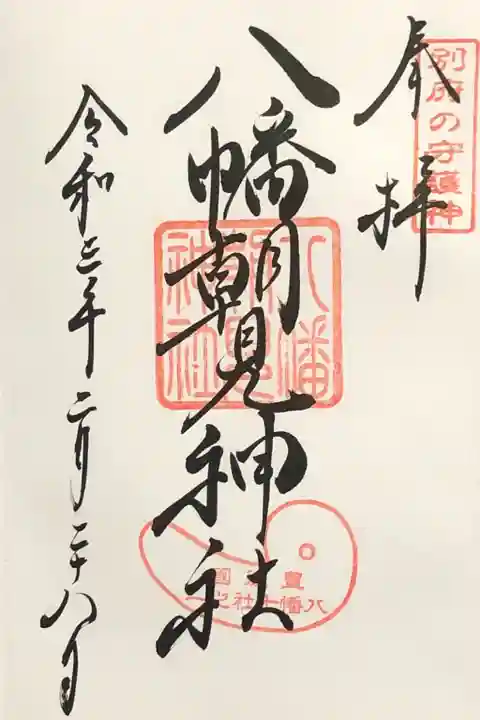 別府の守護神
奉拝
八幡朝見神社
八幡朝見神社
令和三年二月二十八日
八幡十社之一